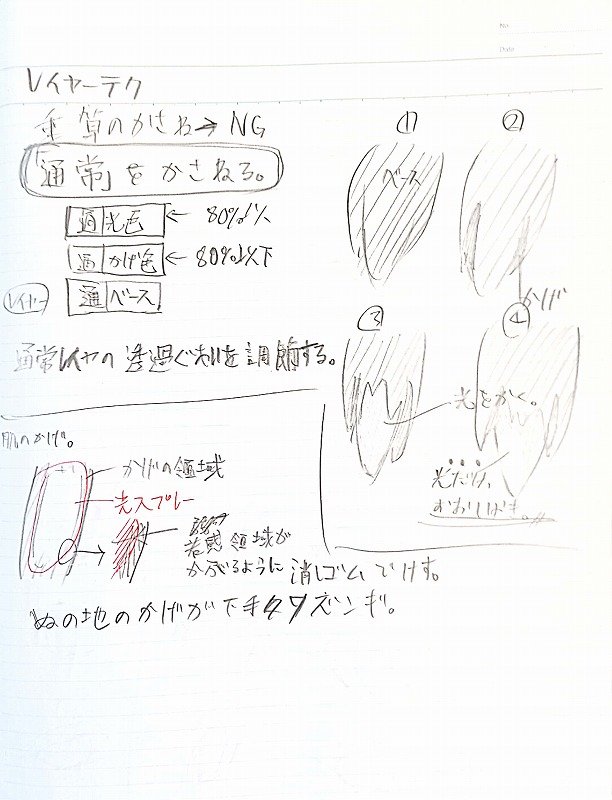 No.
Date
レイヤーテク
乗算のかさね→NG
「通常」をかさねる。
通 光色 ← 80%以
通 かげ色 ← 80%以下
レイヤー
通 ベース
通常レイヤの透過ぐあいを調節する。
① ②
ベース
かげ
③ ④
光をかく。
光だけ、
おおいばも。
肌のかげ。
かげの領域
光スプレー
若感領域が
かぶるように消しゴムでけす。
ぬの地のかげが下手クソズンギ。